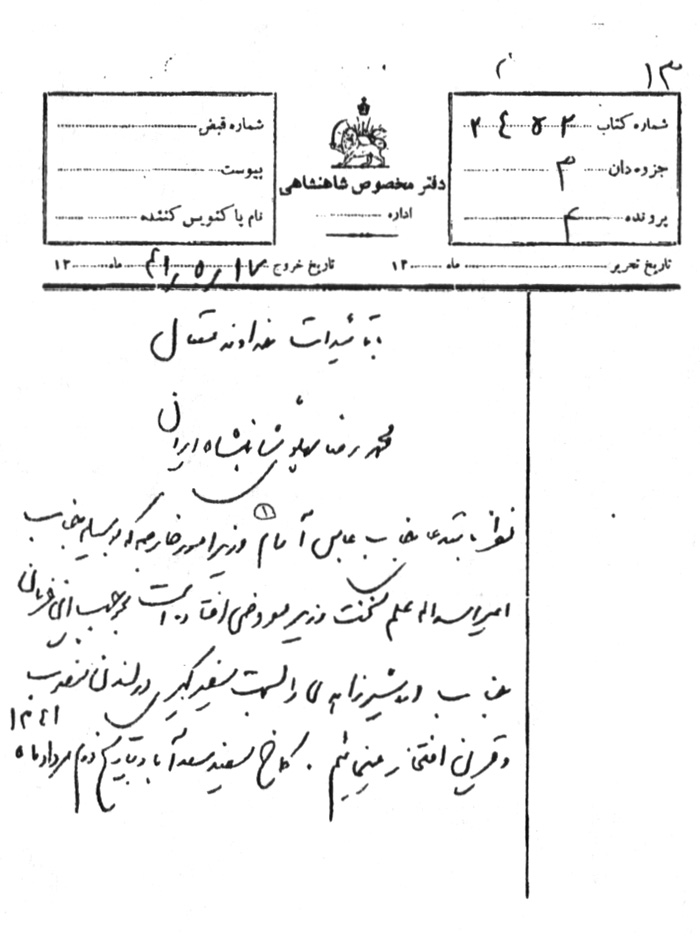 ۱۳
شماره کتاب ۲۴۵۲
جزوه‌دان ۳
پرونده ۴
دفتر مخصوص شاهنشاهی
اداره
شماره قبض
پیوست
نام پاکنویس کننده
تاریخ تحریر ماه ۱۳ تاریخ خروج ۴۱٫۵٫۱۷ ماه ۱۳
با تائیدات خداوند متعال
محمد رضا پهلوی شاهنشاه ایران
نظر باستدعای جناب عباس آرام ۱ وزیر امور خارجه که بوسیله جناب
امیر اسداله علم نخست وزیر معروض افتاده است بموجب این فرمان
جناب اردشیر زاهدی را بسمت سفیر کبیری در لندن منصوب
و قرین افتخار مینمائیم . کاخ سفید سعدآباد بتاریخ دوم مرداد ماه
۱۳۴۱